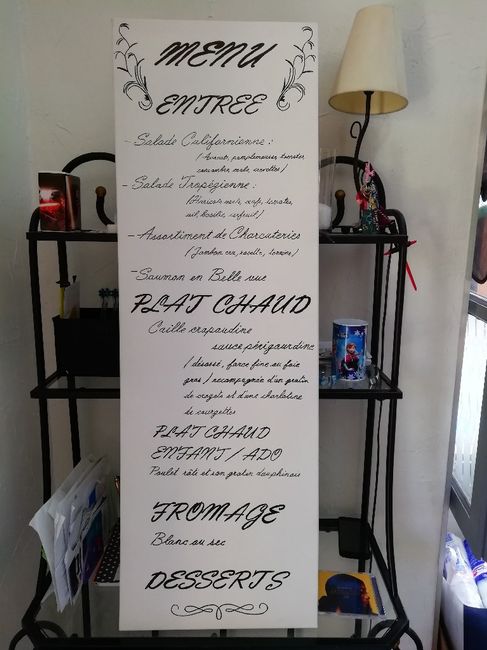 MENU
ENTREE
- Salade Californienne :
(Avocats, pamplemousses, tomates,
concombre, crevettes)
- Salade Tropézienne :
(Haricots verts, oeufs, tomates,
ail, basilic, cerfeuil)
- Assortiment de Charcuteries
(Jambon cru, rosette, terrine)
- Saumon en Belle vue
PLAT CHAUD
Caille crapaudine
sauce périgourdine
(désossé, farce fine au foie
gras) accompagnée d'un gratin
de crozets et d'une charlotine
de courgettes
PLAT CHAUD
ENFANT / ADO
Poulet rôti et son gratin dauphinois
FROMAGE
Blanc ou sec
DESSERTS